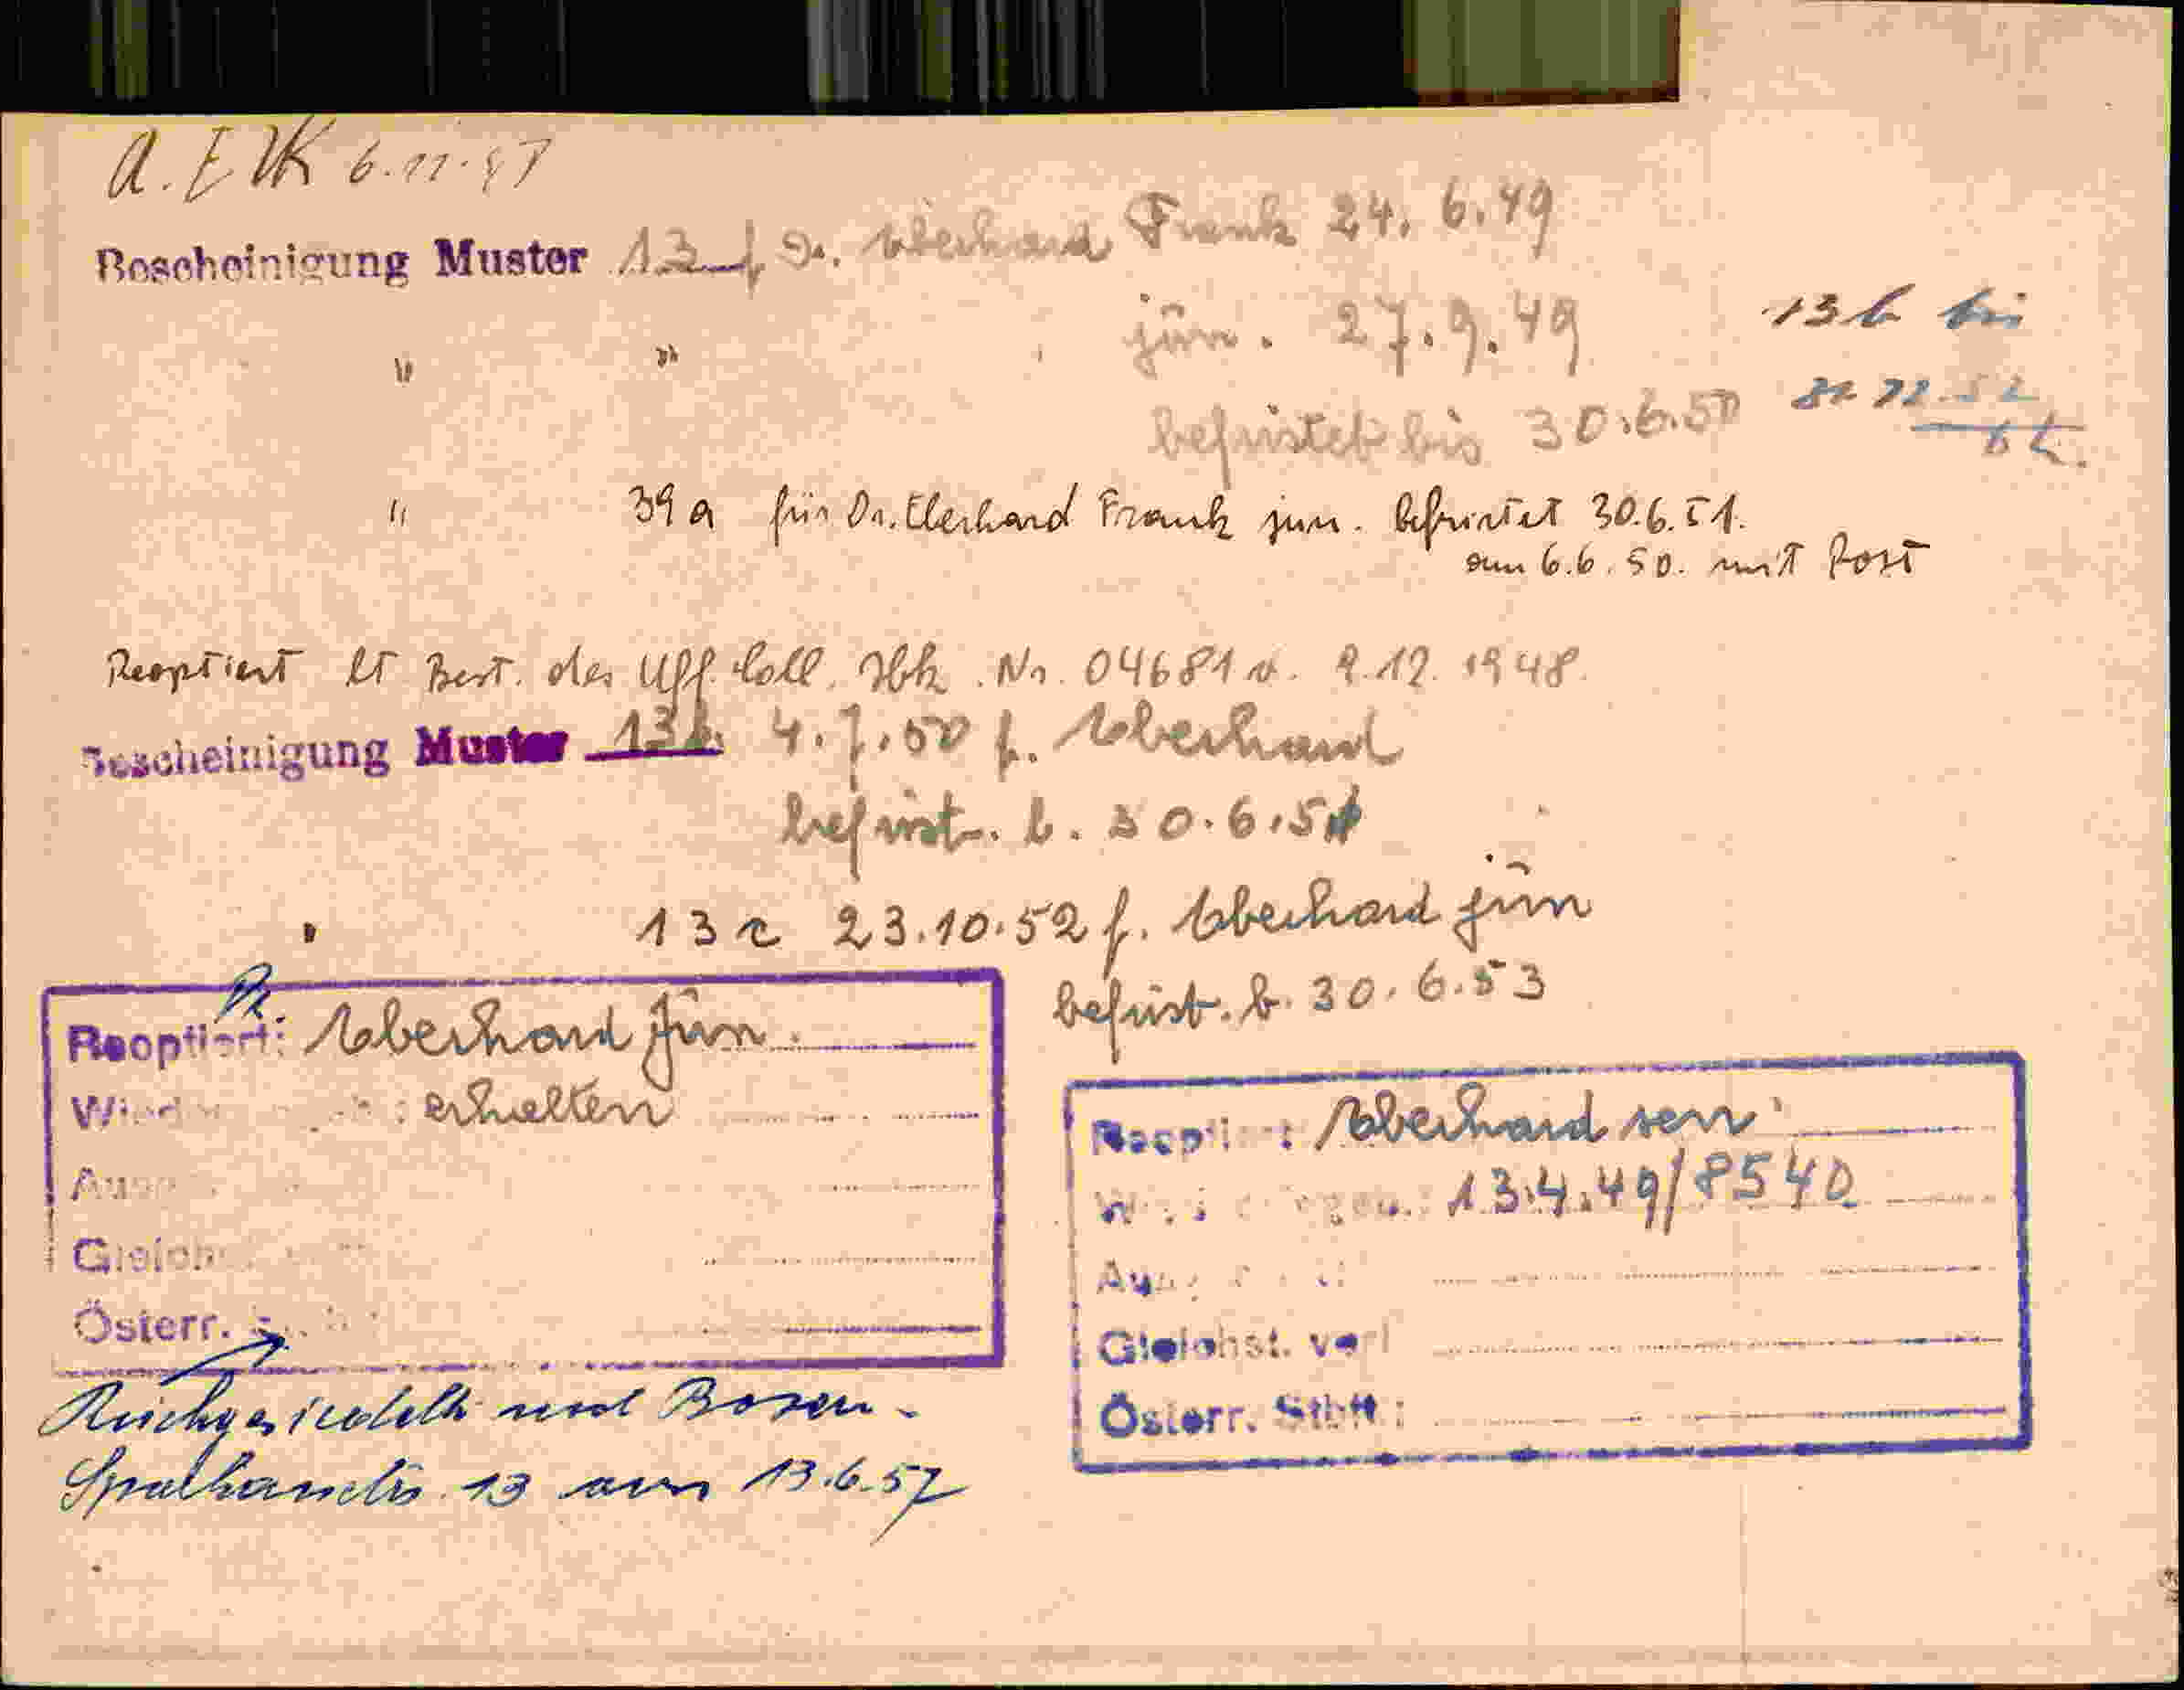 A.E.K 6.11.47
Bescheinigung Muster 13 f. Dr. Eberhard Frank 24.6.49
" " jun. 27.9.49
13 b bis
befristet bis 30.6.50
" 39 a für Dr. Eberhard Frank jun. befristet 30.6.51.
am 6.6.50. mit Post
Reoptiert lt Best. des Uff. Coll. Ibk. Nr. 04681 v. 9.12.1948.
Bescheinigung Muster 13b. 4.7.50 f. Eberhard
befrist. b. 30.6.51
" 13 c 23.10.52 f. Eberhard jun
befrist. b. 30.6.53
Reoptiert: Eberhard jun.
erhalten
Gleich
Österr.
Rückgesiedelt nach Bozen.
13 am 13.6.57
Reoptiert: Eberhard sen
13.4.49/8540
Gleichst. verl
Österr. Stbst: